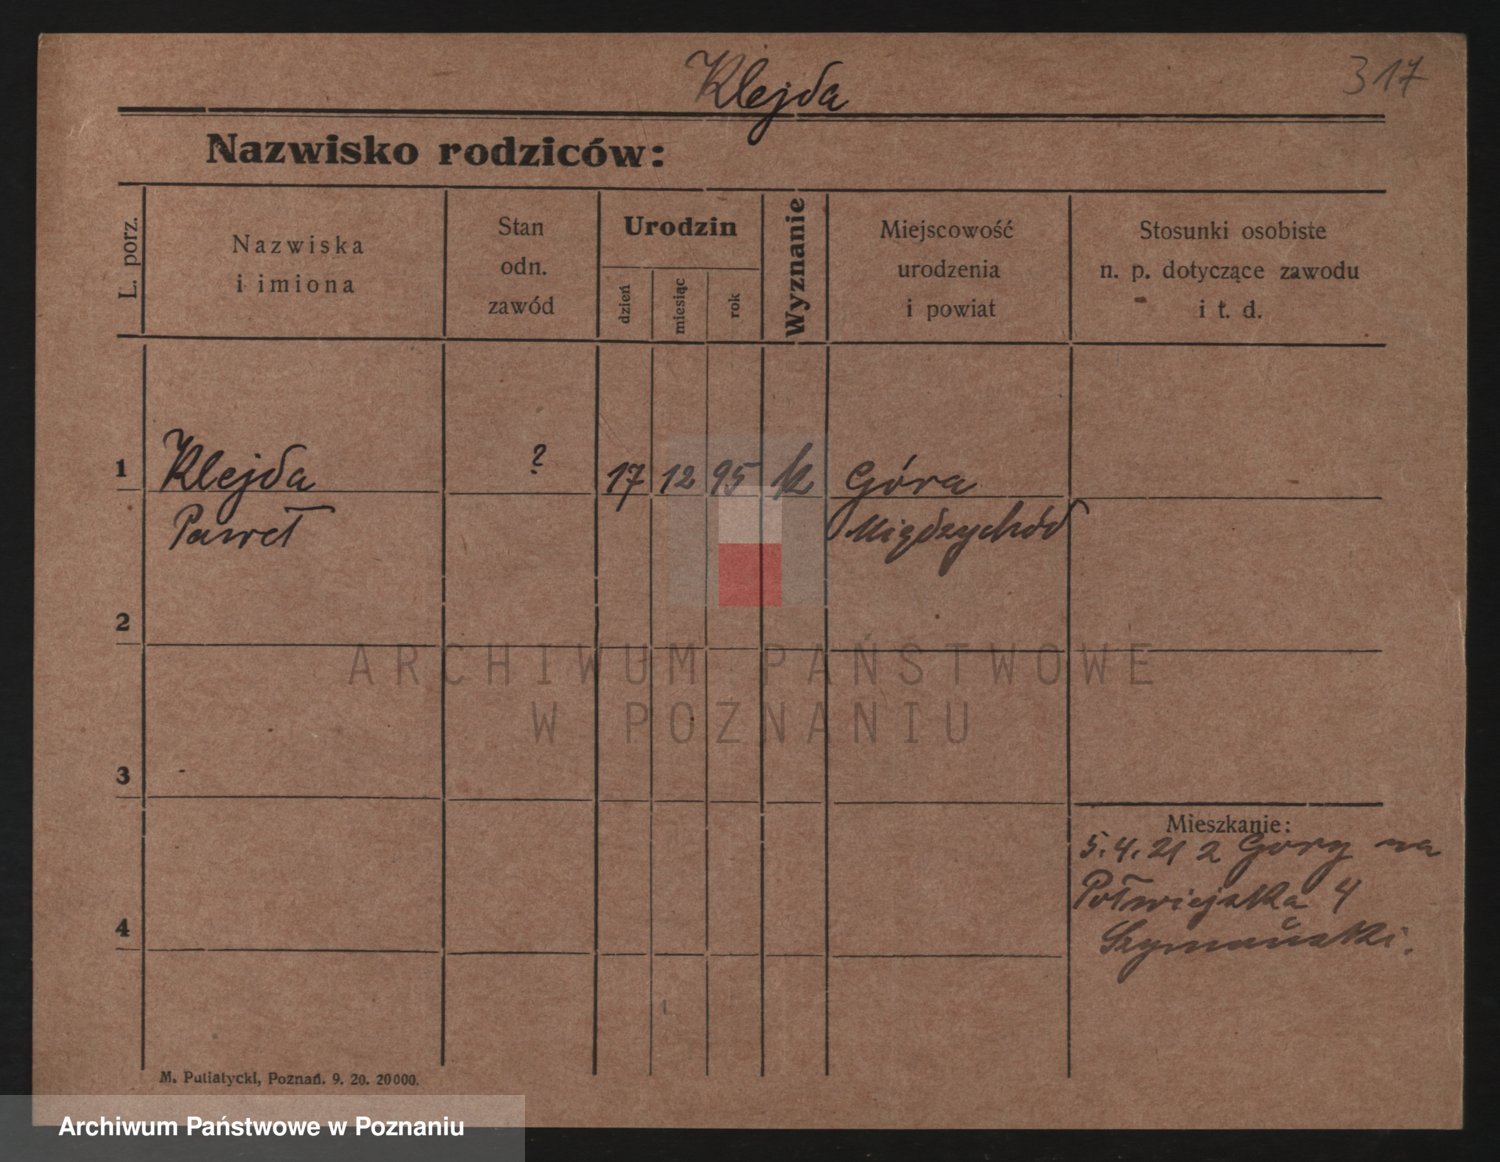 Klejda
317
Nazwisko rodziców:
L. porz.
Nazwiska
i imiona
Stan
odn.
zawód
Urodzin
dzień
miesiąc
rok
Wyznanie
Miejscowość
urodzenia
i powiat
Stosunki osobiste
n. p. dotyczące zawodu
i t. d.
1
Klejda ? 17 12 95 k Góra
Paweł Międzychód
2
ARCHIWUM PAŃSTWOWE
W POZNANIU
3
Mieszkanie:
5.4.21 z Gory na
Półwiejska 4
Szymański.
4
M. Putiatycki, Poznań. 9. 20. 20000.
Archiwum Państwowe w Poznaniu